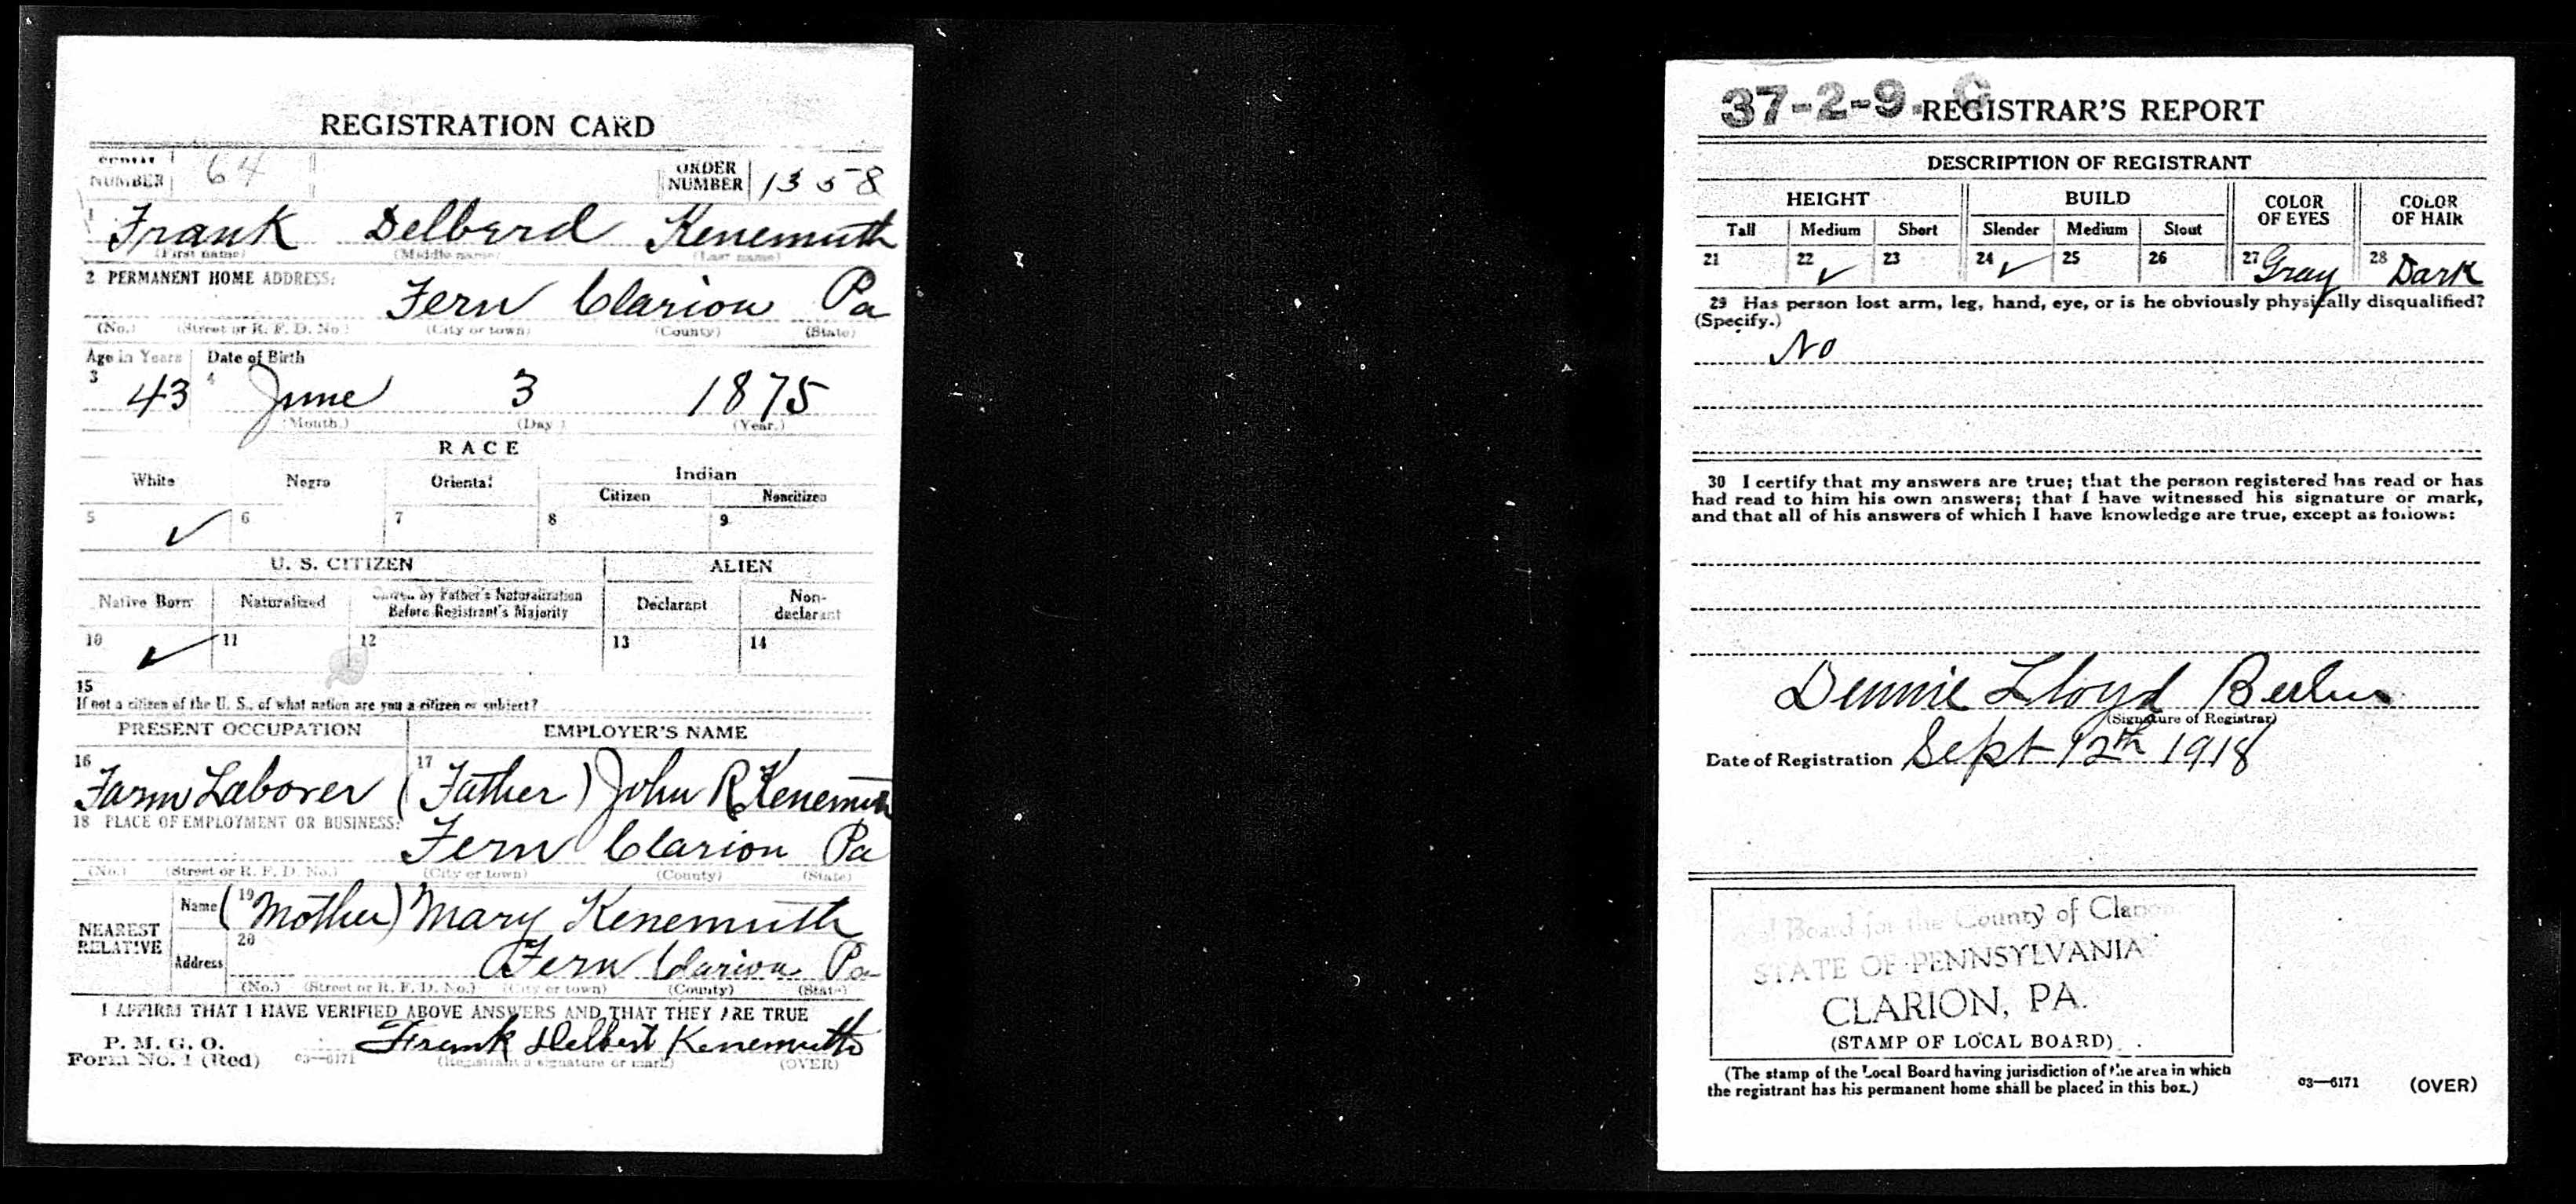 REGISTRATION CARD
SERIAL NUMBER 64 ORDER NUMBER 1358
1 Frank Delberd Kenemuth
(First name) (Middle name) (Last name)
2 PERMANENT HOME ADDRESS:
Fern Clarion Pa
(No.) (Street or R. F. D. No.) (City or town) (County) (State)
Age in Years Date of Birth
3 43 4 June 3 1875
(Month.) (Day.) (Year.)
RACE
White Negro Oriental Indian
Citizen Noncitizen
5 ✓ 6 7 8 9
U. S. CITIZEN ALIEN
Native Born Naturalized Citizen by Father's Naturalization Before Registrant's Majority Declarant Non-declarant
10 ✓ 11 12 13 14
15
If not a citizen of the U. S., of what nation are you a citizen or subject?
PRESENT OCCUPATION EMPLOYER'S NAME
16 Farm Laborer 17 (Father) John R Kenemuth
18 PLACE OF EMPLOYMENT OR BUSINESS:
Fern Clarion Pa
(No.) (Street or R. F. D. No.) (City or town) (County) (State)
NEAREST RELATIVE Name 19 (Mother) Mary Kenemuth
Address 20 Fern Clarion Pa
(No.) (Street or R. F. D. No.) (City or town) (County) (State)
I AFFIRM THAT I HAVE VERIFIED ABOVE ANSWERS AND THAT THEY ARE TRUE
P. M. G. O.
Form No. 1 (Red) 03—6171 Frank Delbert Kenemuth
(Registrant's signature or mark) (OVER)
37-2-9. C REGISTRAR'S REPORT
DESCRIPTION OF REGISTRANT
HEIGHT BUILD COLOR OF EYES COLOR OF HAIR
Tall Medium Short Slender Medium Stout
21 22 ✓ 23 24 ✓ 25 26 27 Gray 28 Dark
29 Has person lost arm, leg, hand, eye, or is he obviously physically disqualified?
(Specify.)
No
30 I certify that my answers are true; that the person registered has read or has
had read to him his own answers; that I have witnessed his signature or mark,
and that all of his answers of which I have knowledge are true, except as follows:
Dennie Lloyd
(Signature of Registrar)
Date of Registration Sept 12th 1918
Board for the County of Clarion
STATE OF PENNSYLVANIA
CLARION, PA.
(STAMP OF LOCAL BOARD)
(The stamp of the Local Board having jurisdiction of the area in which
the registrant has his permanent home shall be placed in this box.)
03—6171 (OVER)